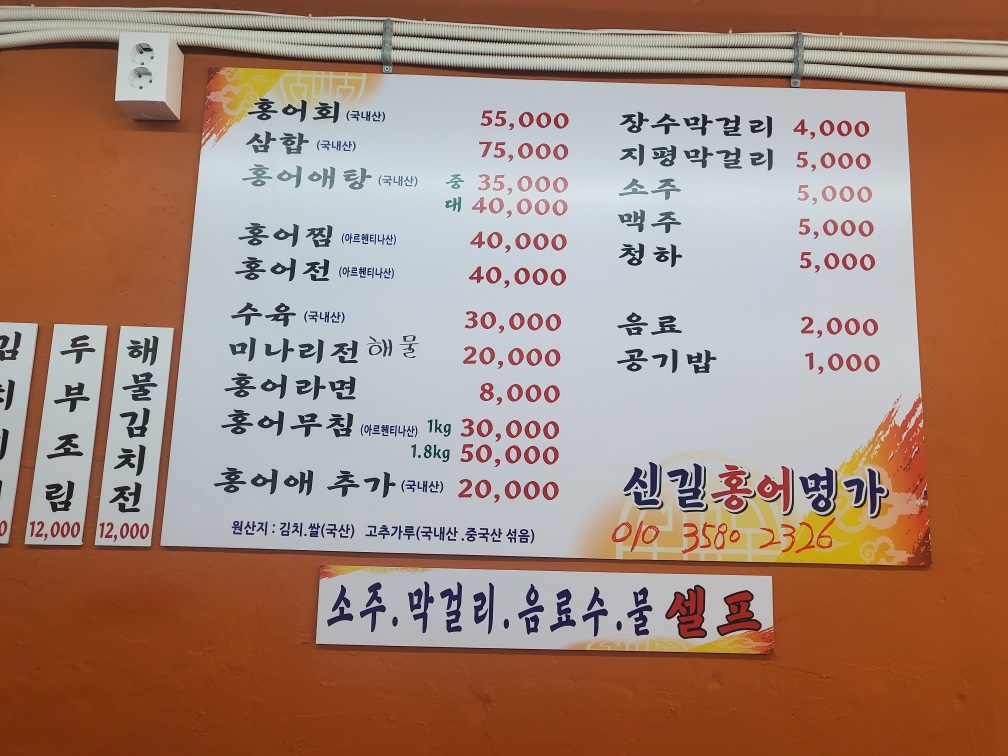 홍어회 (국내산) 55,000
삼합 (국내산) 75,000
홍어애탕 (국내산) 중 35,000
대 40,000
홍어찜 (아르헨티나산) 40,000
홍어전 (아르헨티나산) 40,000
수육 (국내산) 30,000
미나리전 해물 20,000
홍어라면 8,000
홍어무침 (아르헨티나산) 1kg 30,000
1.8kg 50,000
홍어애 추가 (국내산) 20,000
원산지 : 김치.쌀(국산) 고추가루(국내산 .중국산 섞음)
장수막걸리 4,000
지평막걸리 5,000
소주 5,000
맥주 5,000
청하 5,000
음료 2,000
공기밥 1,000
신길홍어명가
010 3580 2326
두부조림
12,000
해물김치전
12,000
소주.막걸리.음료수.물 셀프